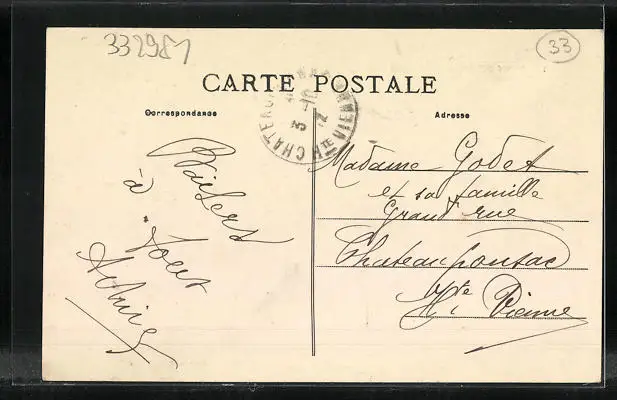 332981
33
CARTE POSTALE
Correspondance
Adresse
CHATEAUPONSAC
Hte VIENNE
Baisers
à tous
Madame Godet
et sa famille
Grand rue
Chateauponsac
Hte Vienne